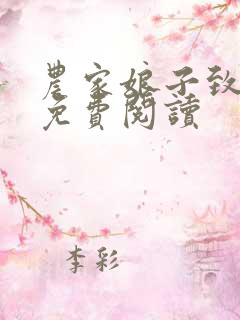 農家娘子致
免費閱讀
李彩